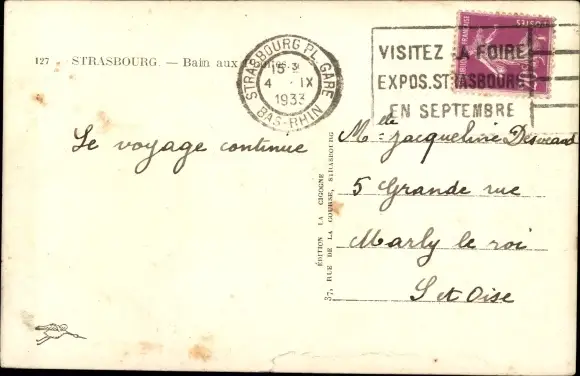 127 STRASBOURG. — Bain aux
STRASBOURG PL. GARE
15-3
4 · IX
1933
BAS-RHIN
VISITEZ LA FOIRE
EXPOS. STRASBOURG
EN SEPTEMBRE
Le voyage continue
Mlle Jacqueline
5 Grande rue
Marly le roi
S et Oise
ÉDITION LA CIGOGNE
37, RUE DE LA COURSE, STRASBOURG